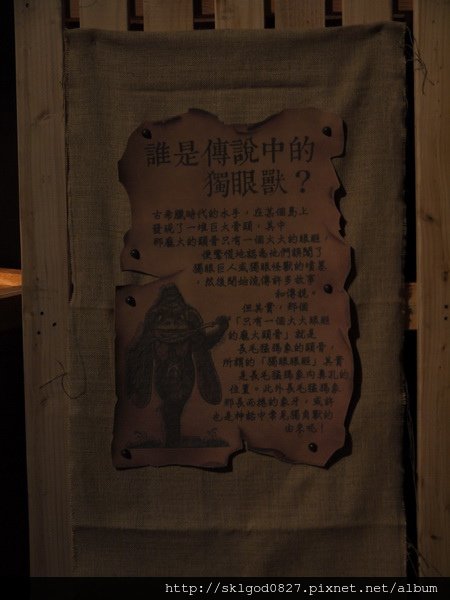 誰是傳說中的
獨眼獸？
古希臘時代的水手，在某個島上
發現了一堆巨大骨頭，其中
那龐大的頭骨只有一個大大的眼眶，
便驚慌地認為他們誤闖了
獨眼巨人或獨眼怪獸的墳墓
，然後開始流傳許多故事
和傳說。
但其實，那個
「只有一個大大眼眶
的龐大頭骨」就是
長毛猛獁象的頭骨，
所謂的「獨眼眼眶」其實
是長毛猛獁象內鼻孔的
位置。此外長毛猛獁象
那長而捲的象牙，或許
也是神話中常見獨角獸的
由來呢！
http://sklgod0827.pixnet.net/album